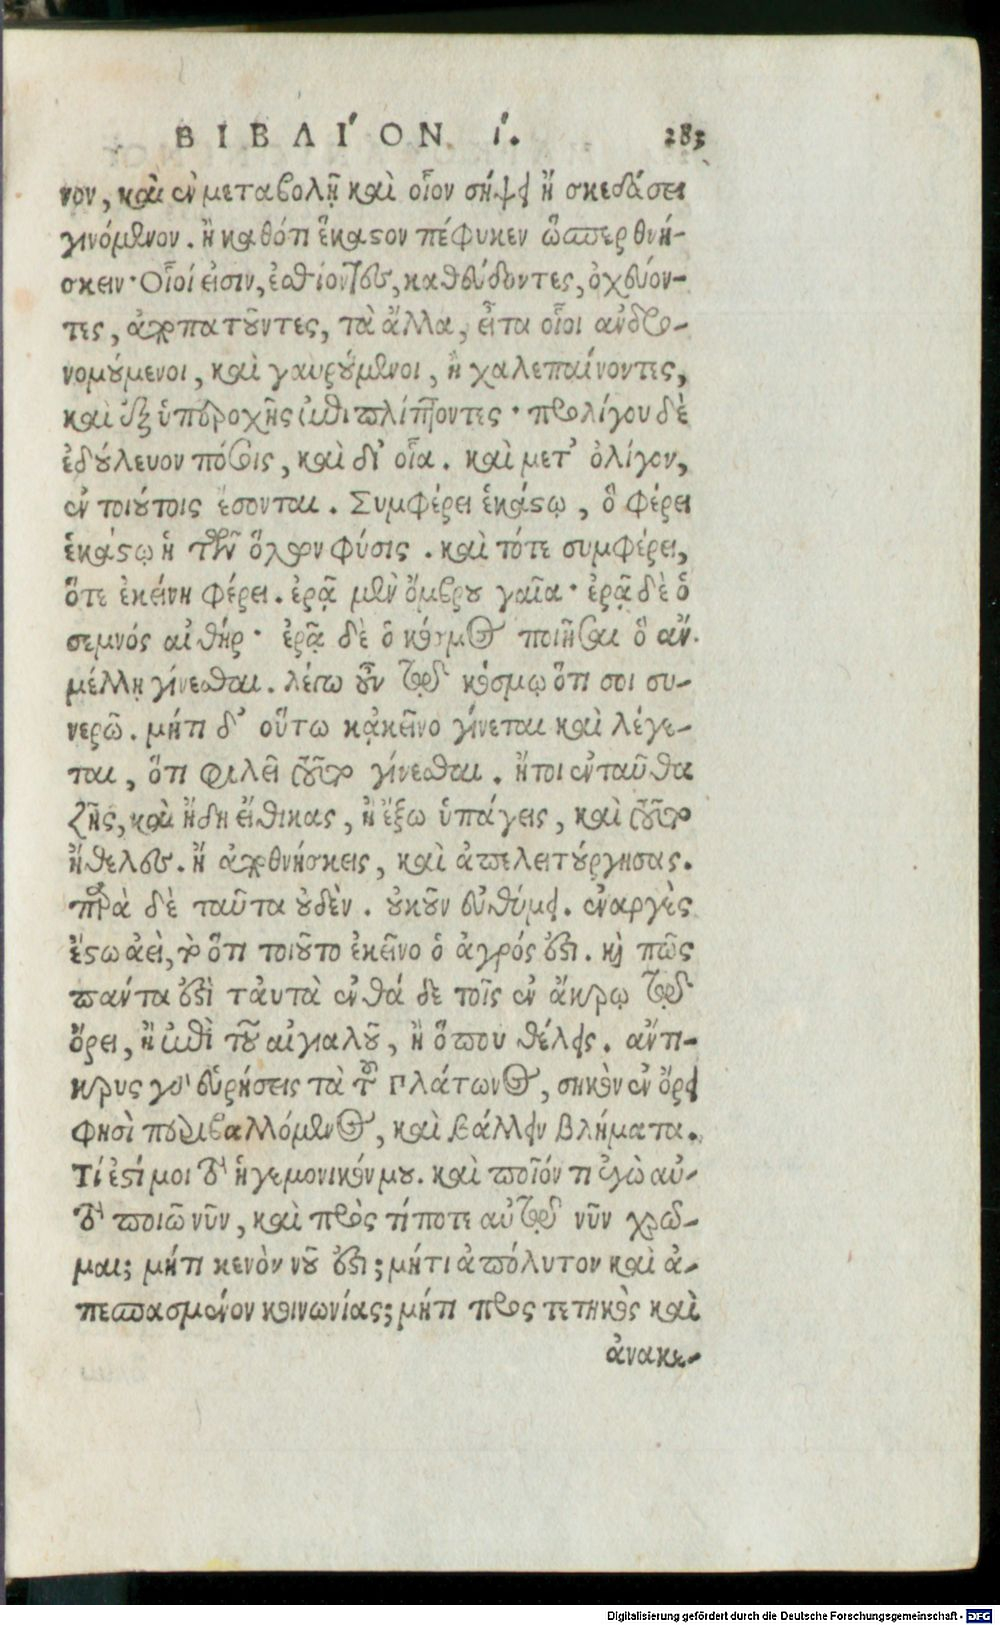 ΒΙΒΛΙ´ΟΝ ί. 283
νον, καὶ ἐν μεταβολῇ καὶ οἷον σήψει ἢ σκεδάσει
γινόμενον. ἢ καθότι ἕκαστον πέφυκεν ὥσπερ θνή-
σκειν· Οἷοί εἰσιν, ἐσθίοντες, καθεύδοντες, ὀχεύον-
τες, ἀποπατοῦντες, τὰ ἄλλα, εἶτα οἷοι ἀνδρο-
νομούμενοι, καὶ γαυρούμενοι, ἢ χαλεπαίνοντες,
καὶ ἐξ ὑπεροχῆς ἐπιπλήττοντες· προλίγου δὲ
ἐδούλευον πόσοις, καὶ δι' οἷα. καὶ μετ' ὀλίγον,
ἐν τοιούτοις ἔσονται. Συμφέρει ἑκάστῳ, ὃ φέρει
ἑκάστῳ ἡ τῶν ὅλων φύσις. καὶ τότε συμφέρει,
ὅτε ἐκείνη φέρει. ἐρᾷ μὲν ὄμβρου γαῖα· ἐρᾷ δὲ ὁ
σεμνός αἰθήρ· ἐρᾷ δὲ ὁ κόσμος ποιῆσαι ὃ ἄν.
μέλλῃ γίνεσθαι. λέγω οὖν τῷ κόσμῳ ὅτι σοι συ-
νερῶ. μήτι δ' οὕτω κᾀκεῖνο γίνεται καὶ λέγε-
ται, ὅτι φιλεῖ τοῦτο γίνεσθαι. ἤτοι ἐνταῦθα
ζῇς, καὶ ἤδη εἴθικας, ἢ ἔξω ὑπάγεις, καὶ τοῦτο
ἤθελες. ἢ ἀποθνήσκεις, καὶ ἀπελειτούργησας.
παρὰ δὲ ταῦτα οὐδὲν. οὐκοῦν εὐθύμει. ἐναργὲς
ἔστω ἀεὶ, τὸ ὅτι τοιοῦτο ἐκεῖνο ὁ ἀγρός ἐστι. καὶ πῶς
πάντα ἐστὶ ταὐτὰ ἐνθά δε τοῖς ἐν ἄκρῳ τῷ
ὄρει, ἢ ἐπὶ τοῦ αἰγιαλοῦ, ἢ ὅπου θέλεις. ἄντι-
κρυς γὰρ εὑρήσεις τὰ τοῦ Πλάτωνος, σηκὸν ἐν ὄρει
φησὶ περιβαλλόμενος, καὶ βάλλειν βλήματα.
Τί ἐστί μοι τὸ ἡγεμονικόν μου. καὶ ποῖόν τι ἐγὼ αὐ-
τὸ ποιῶ νῦν, καὶ πρὸς τίποτε αὐτῷ νῦν χρῶ-
μαι; μήτι κενὸν νοῦ ἐστι; μήτι ἀπόλυτον καὶ ἀ-
πεσπασμένον κοινωνίας; μήτι προςτετηκὸς καὶ
ἀνακε-
Digitalisierung gefördert durch die Deutsche Forschungsgemeinschaft - DFG